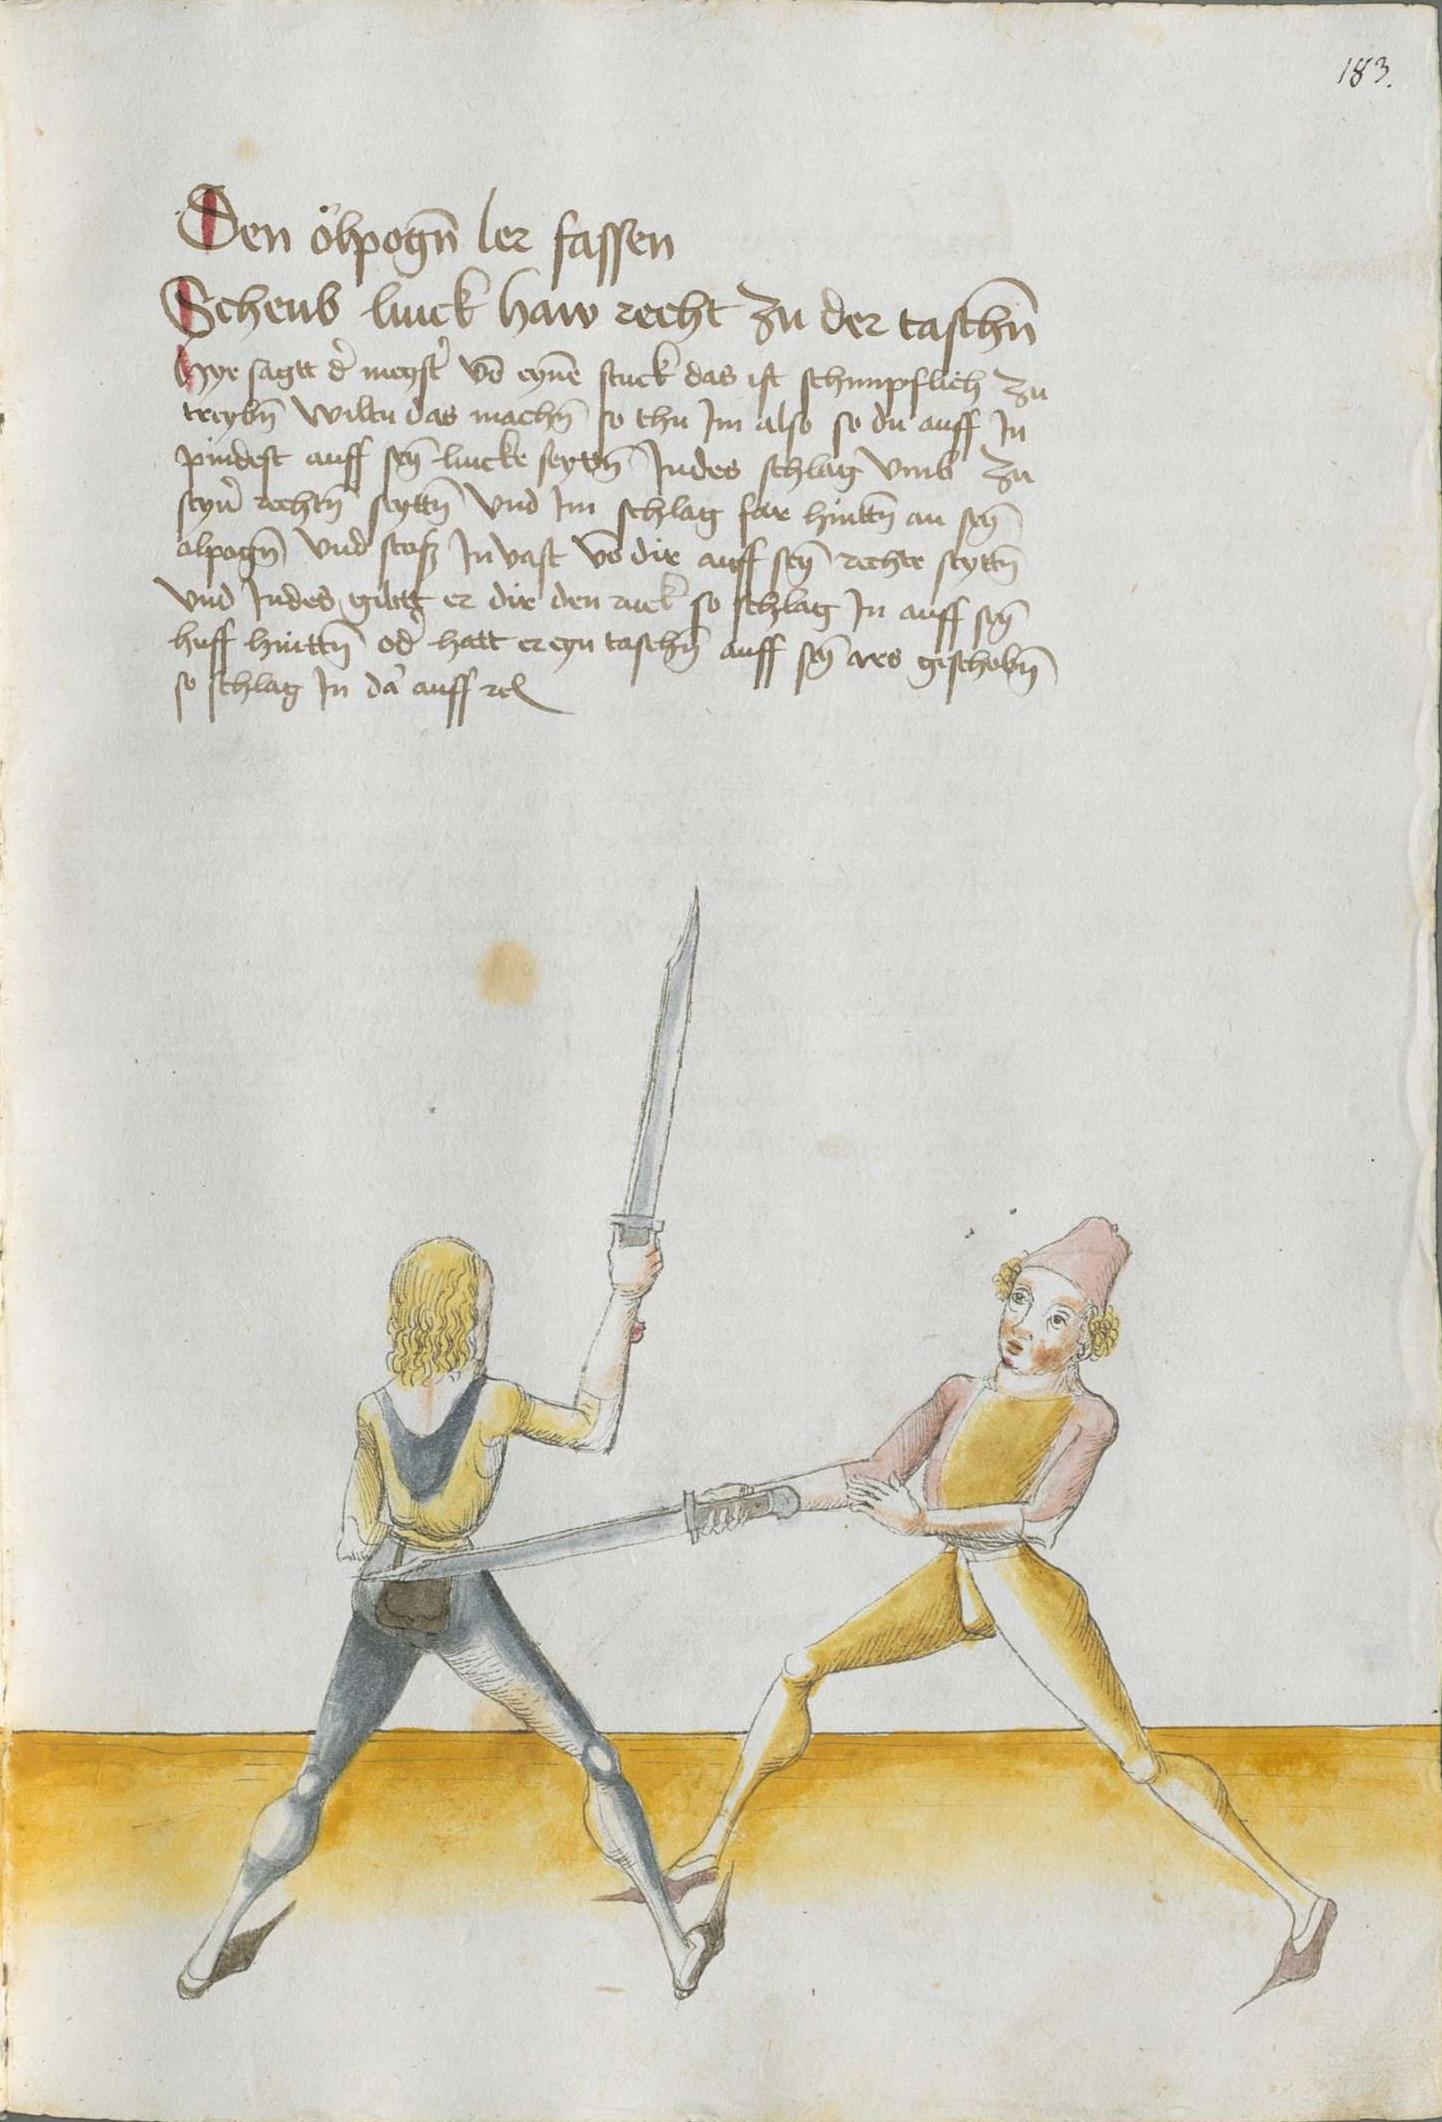 183.
Den ölpogn̄ ler fassen
Scheub linck haw recht zu der taschn̄
Hye sagtt d' meyst' vō eynē stuck das ist schimpflich zu
treybn̄ wiltu das machn̄ so thu Im also so du auff In
pindest auff seȳ lincke seyttn̄ Indes schlag vmb zu
seyn' rechtn̄ seyttn̄ vnd Im schlag far hinttn̄ an seȳ
olpogn̄ vnd stosz In vast vō dir auff seȳ rechte seyttn̄
vnd Indes gibtt er dir den ruck so schlag In auff seȳ
huff hinttn̄ od' hatt er eyn taschn̄ auff seȳ ars geschobn̄
so schlag In da' auff